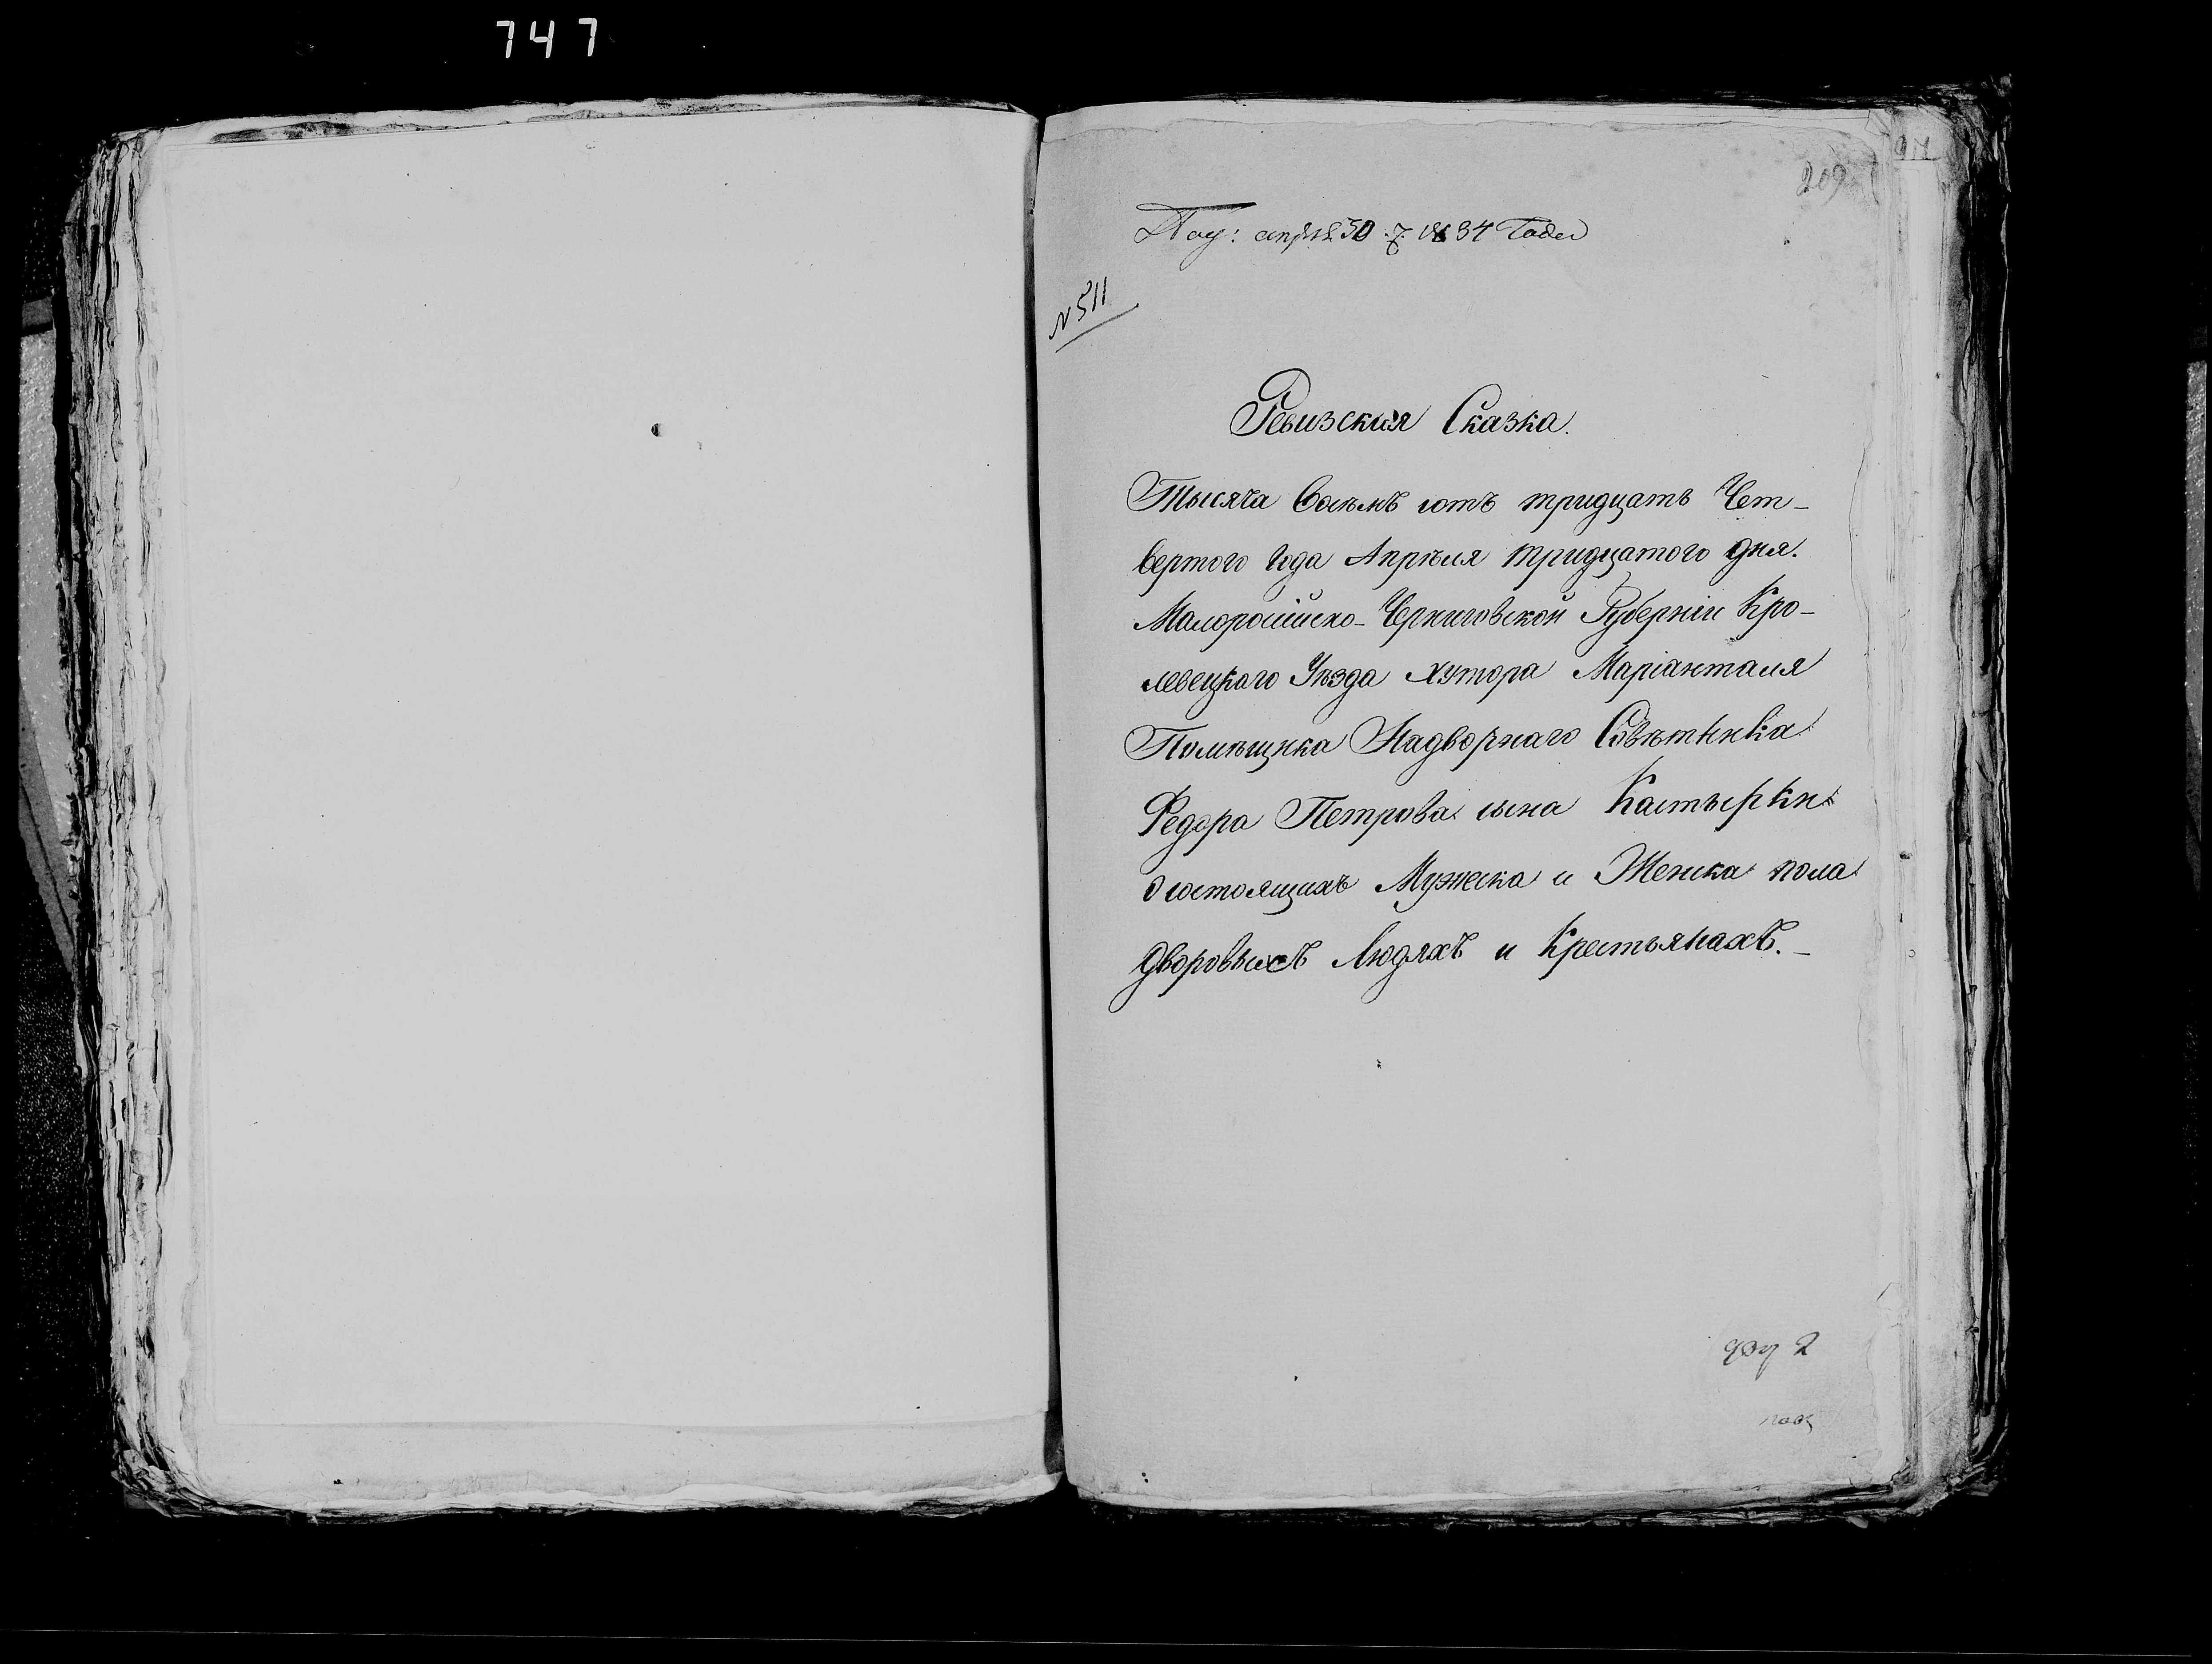 747
209
Пол: апреля 30 1834 Года
N 511
Ревизския Сказка.
Тысяча восемъ сотъ тридцать Чет-
вертого года Апрѣля тридцатого дня.
Малоросійско-Черниговской Губерніи Кро-
левецкаго Уѣзда хутора Маріанталя
Помѣщика Надворнаго Совѣтника
Федора Петрова сына Костырки
о состоящихъ Мужеска и Женска пола
дворовыхъ Людяхъ и Крестьянахъ.-
2